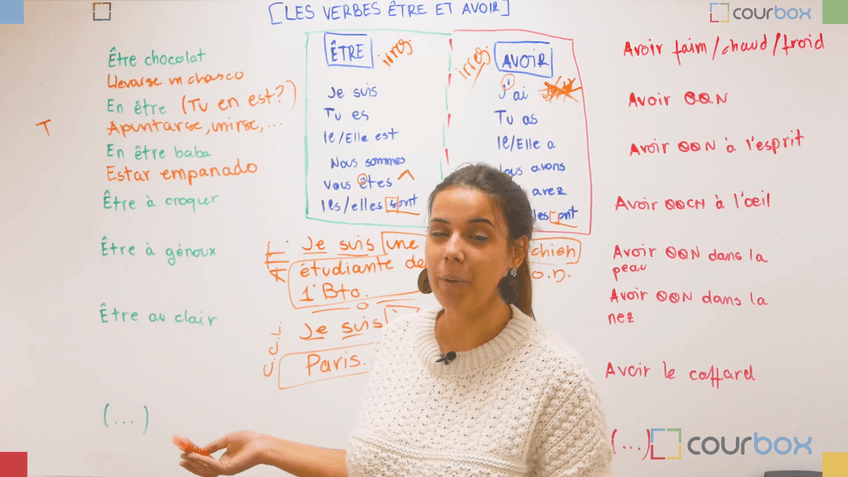 [LES VERBES ÊTRE ET AVOIR]
courbox
Être chocolat
Llevarse un chasco
En être (Tu en est?)
Apuntarse, unirse, ...
En être baba
Estar empanado
Être à croquer
Être à génoux
Être au clair
(...)
T
ÊTRE
irreg.
Je suis
Tu es
Il/Elle est
Nous sommes
Vous êtes
Ils/elles sont
irreg.
AVOIR
J'ai
Tu as
Il/Elle a
avons
avez
ont
Je suis une
étudiante de
1º Bto.
chien
O.D.
Je suis
Paris.
Avoir faim/chaud/froid
Avoir QQN
Avoir QQN à l'esprit
Avoir QQCN à l'œil
Avoir QQN dans la
peau
Avoir QQN dans la
nez
Avoir le caffard
(...)
courbox